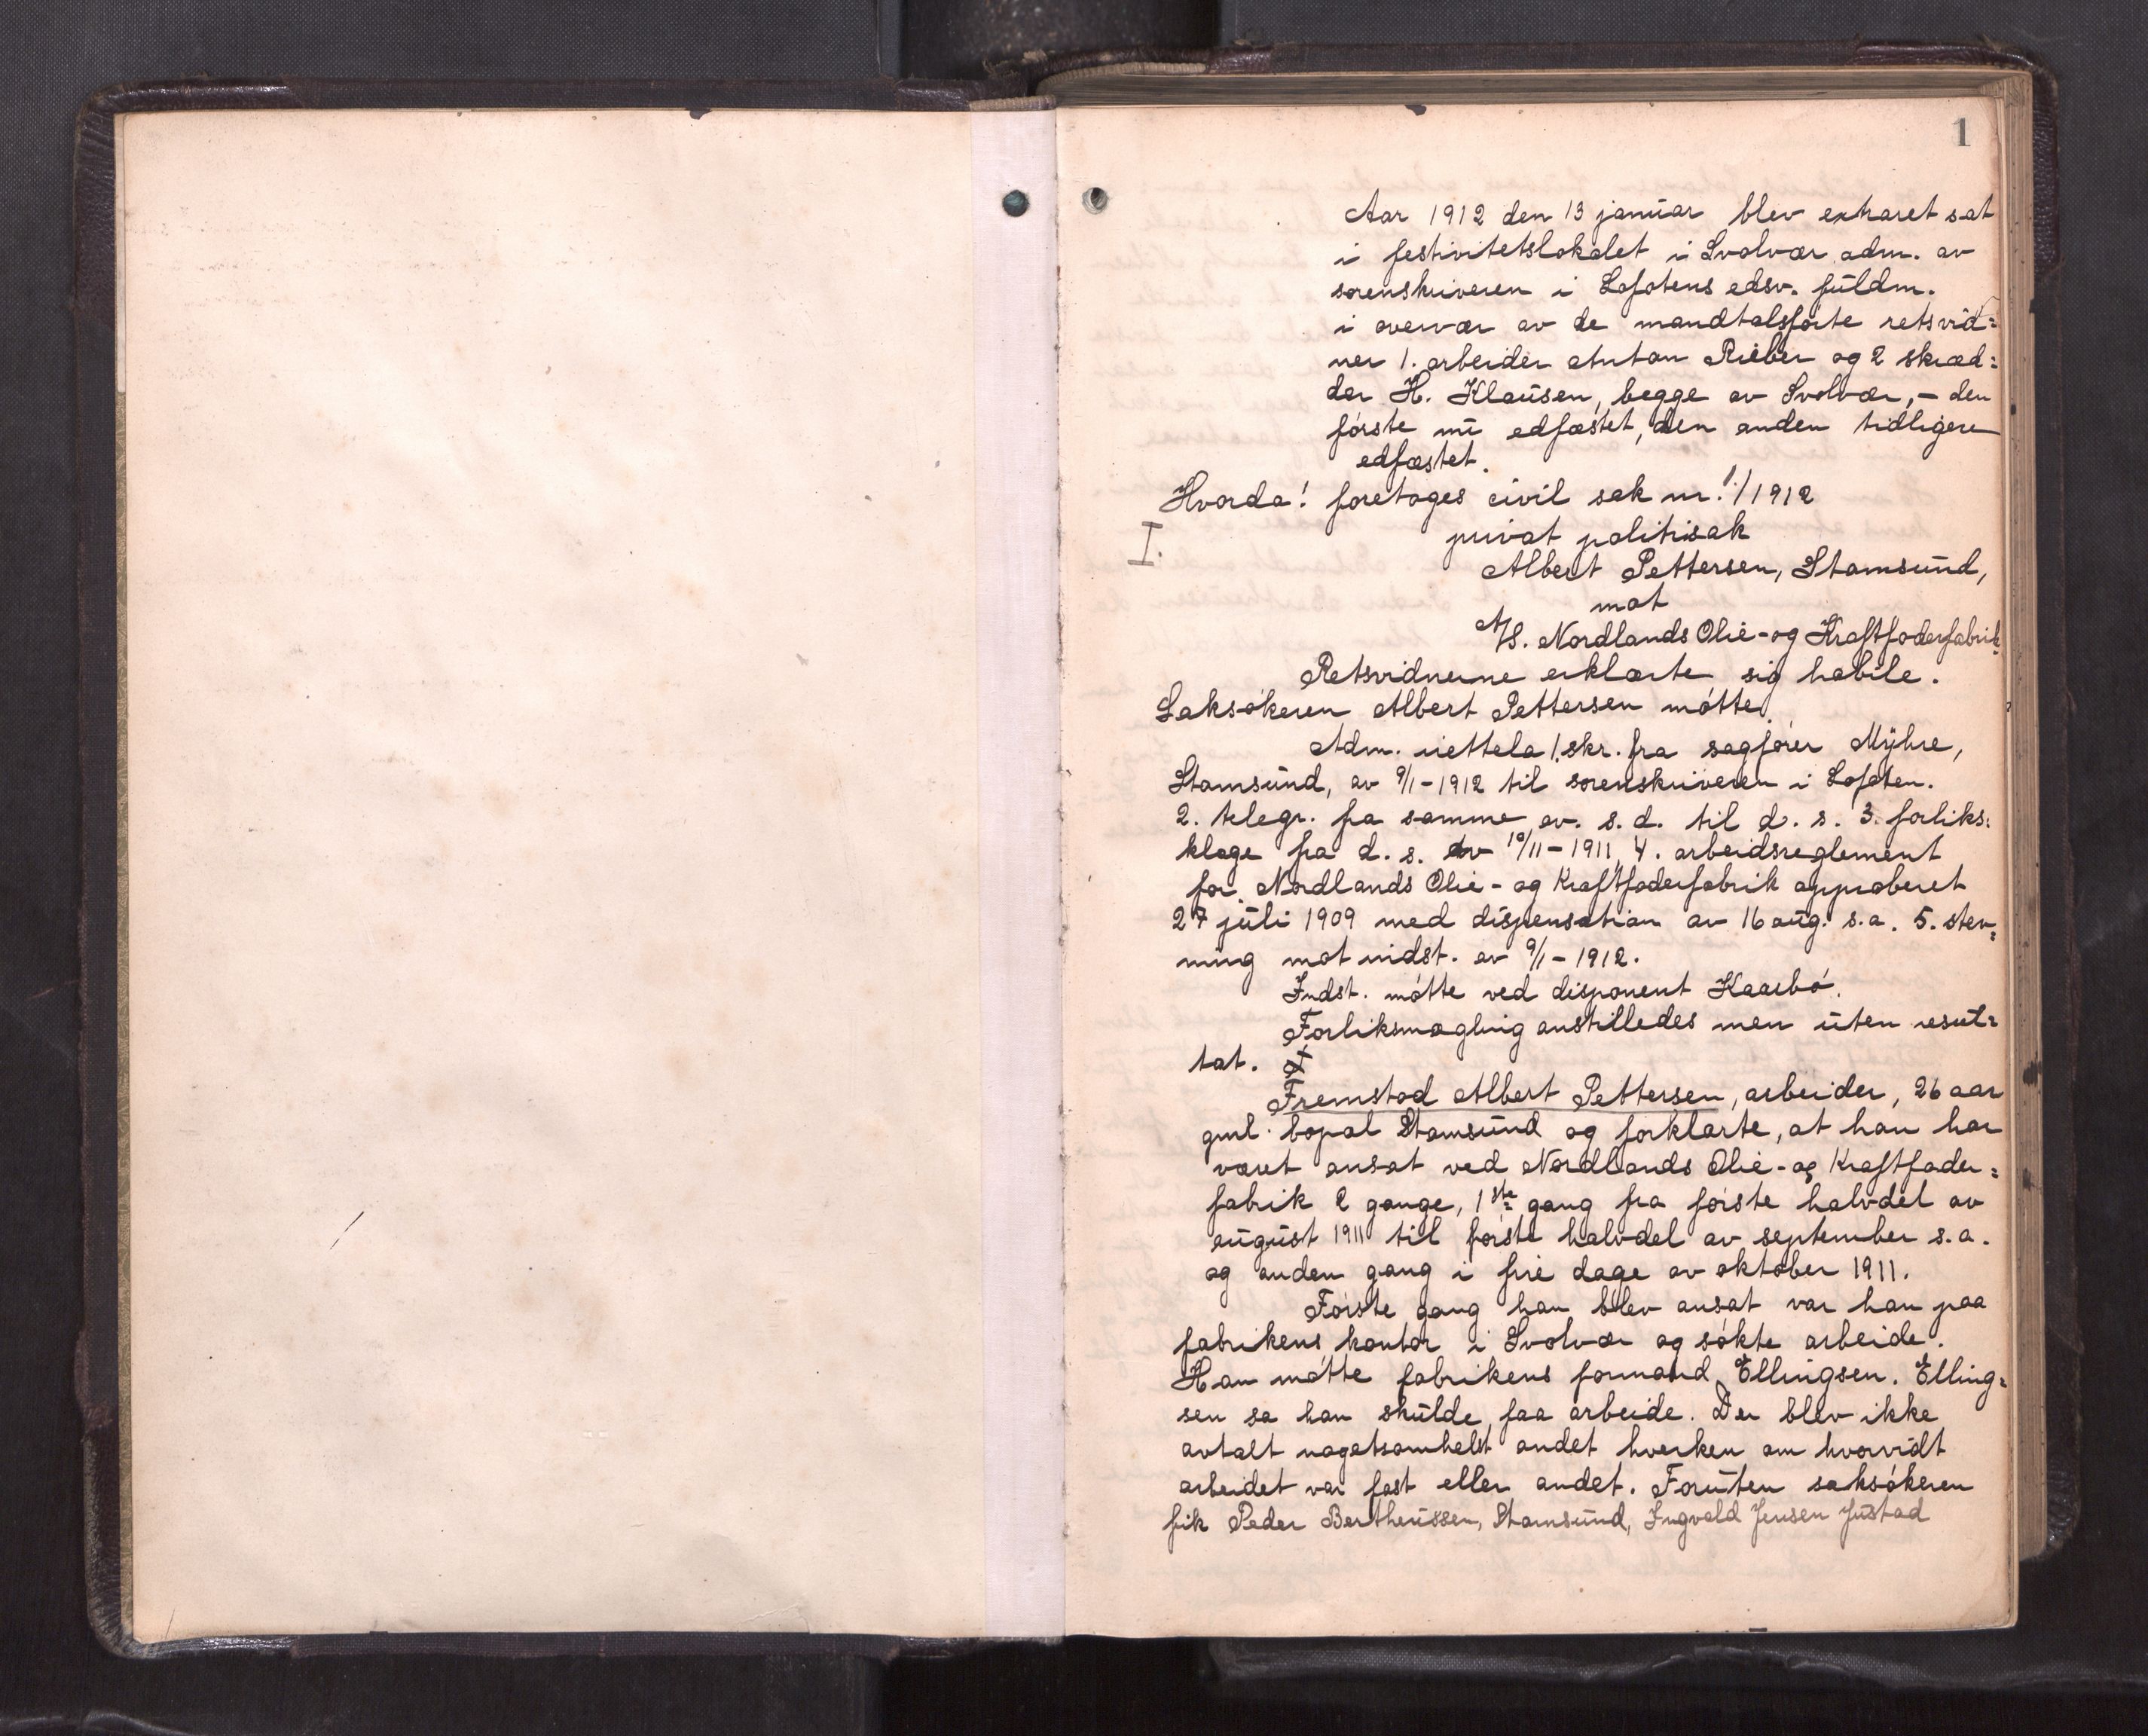 1
Aar 1912 den 13 januar blev extraret sat
i festivitetslokalet i Svolvær adm. av
sorenskriveren i Lofotens edsv. fuldm.
i overvær av de mandtalsførte retsvid=
ner 1. arbeider Anton Rieber og 2 skræd=
der H. Klausen, begge av Svolvær, – den
første nu edfæstet, den anden tidligere
edfæstet.
Hvorda! foretoges civil sak nr. 1/1912
I.
privat politisak
Albert Pettersen, Stamsund,
mot
A/S. Nordlands Olie- og Kraftfoderfabrik.
Retsvidnerne erklærte sig habile.
Saksøkeren Albert Pettersen møtte.
Adm. fra sagfører Myhre,
Stamsund, av 9/1-1912 til sorenskriveren i Lofoten.
2. telegr. fra samme av. s. d. til d. s. 3. forliks=
klage fra d. s. av 10/11-1911, 4. arbeidsreglement
for Nordlands Olie- og Kraftfoderfabrik approberet
27 juli 1909 med dispensation av 16 aug. s.a. 5. stev=
ning mot indst. av 9/1-1912.
Indst. møtte ved disponent Kaarbø.
Forliksmægling anstilledes men uten resul=
tat.
Fremstod Albert Pettersen, arbeider, 26 aar
gml. bopæl Stamsund og forklarte, at han har
været ansat ved Nordlands Olie- og Kraftfoder=
fabrik 2 gange, 1ste gang fra første halvdel av
august 1911 til første halvdel av september s.a.
og anden gang i fire dage av oktober 1911.
Første gang han blev ansat var han paa
fabrikens kontor i Svolvær og søkte arbeide.
Han møtte fabrikens formand Ellingsen. Elling=
sen sa han skulde faa arbeide. Der blev ikke
avtalt nogetsomhelst andet hverken om hvorvidt
arbeidet var fast eller andet. Foruten saksøkeren
fik Peder Bertheussen, Stamsund, Ingvald Jensen Justad